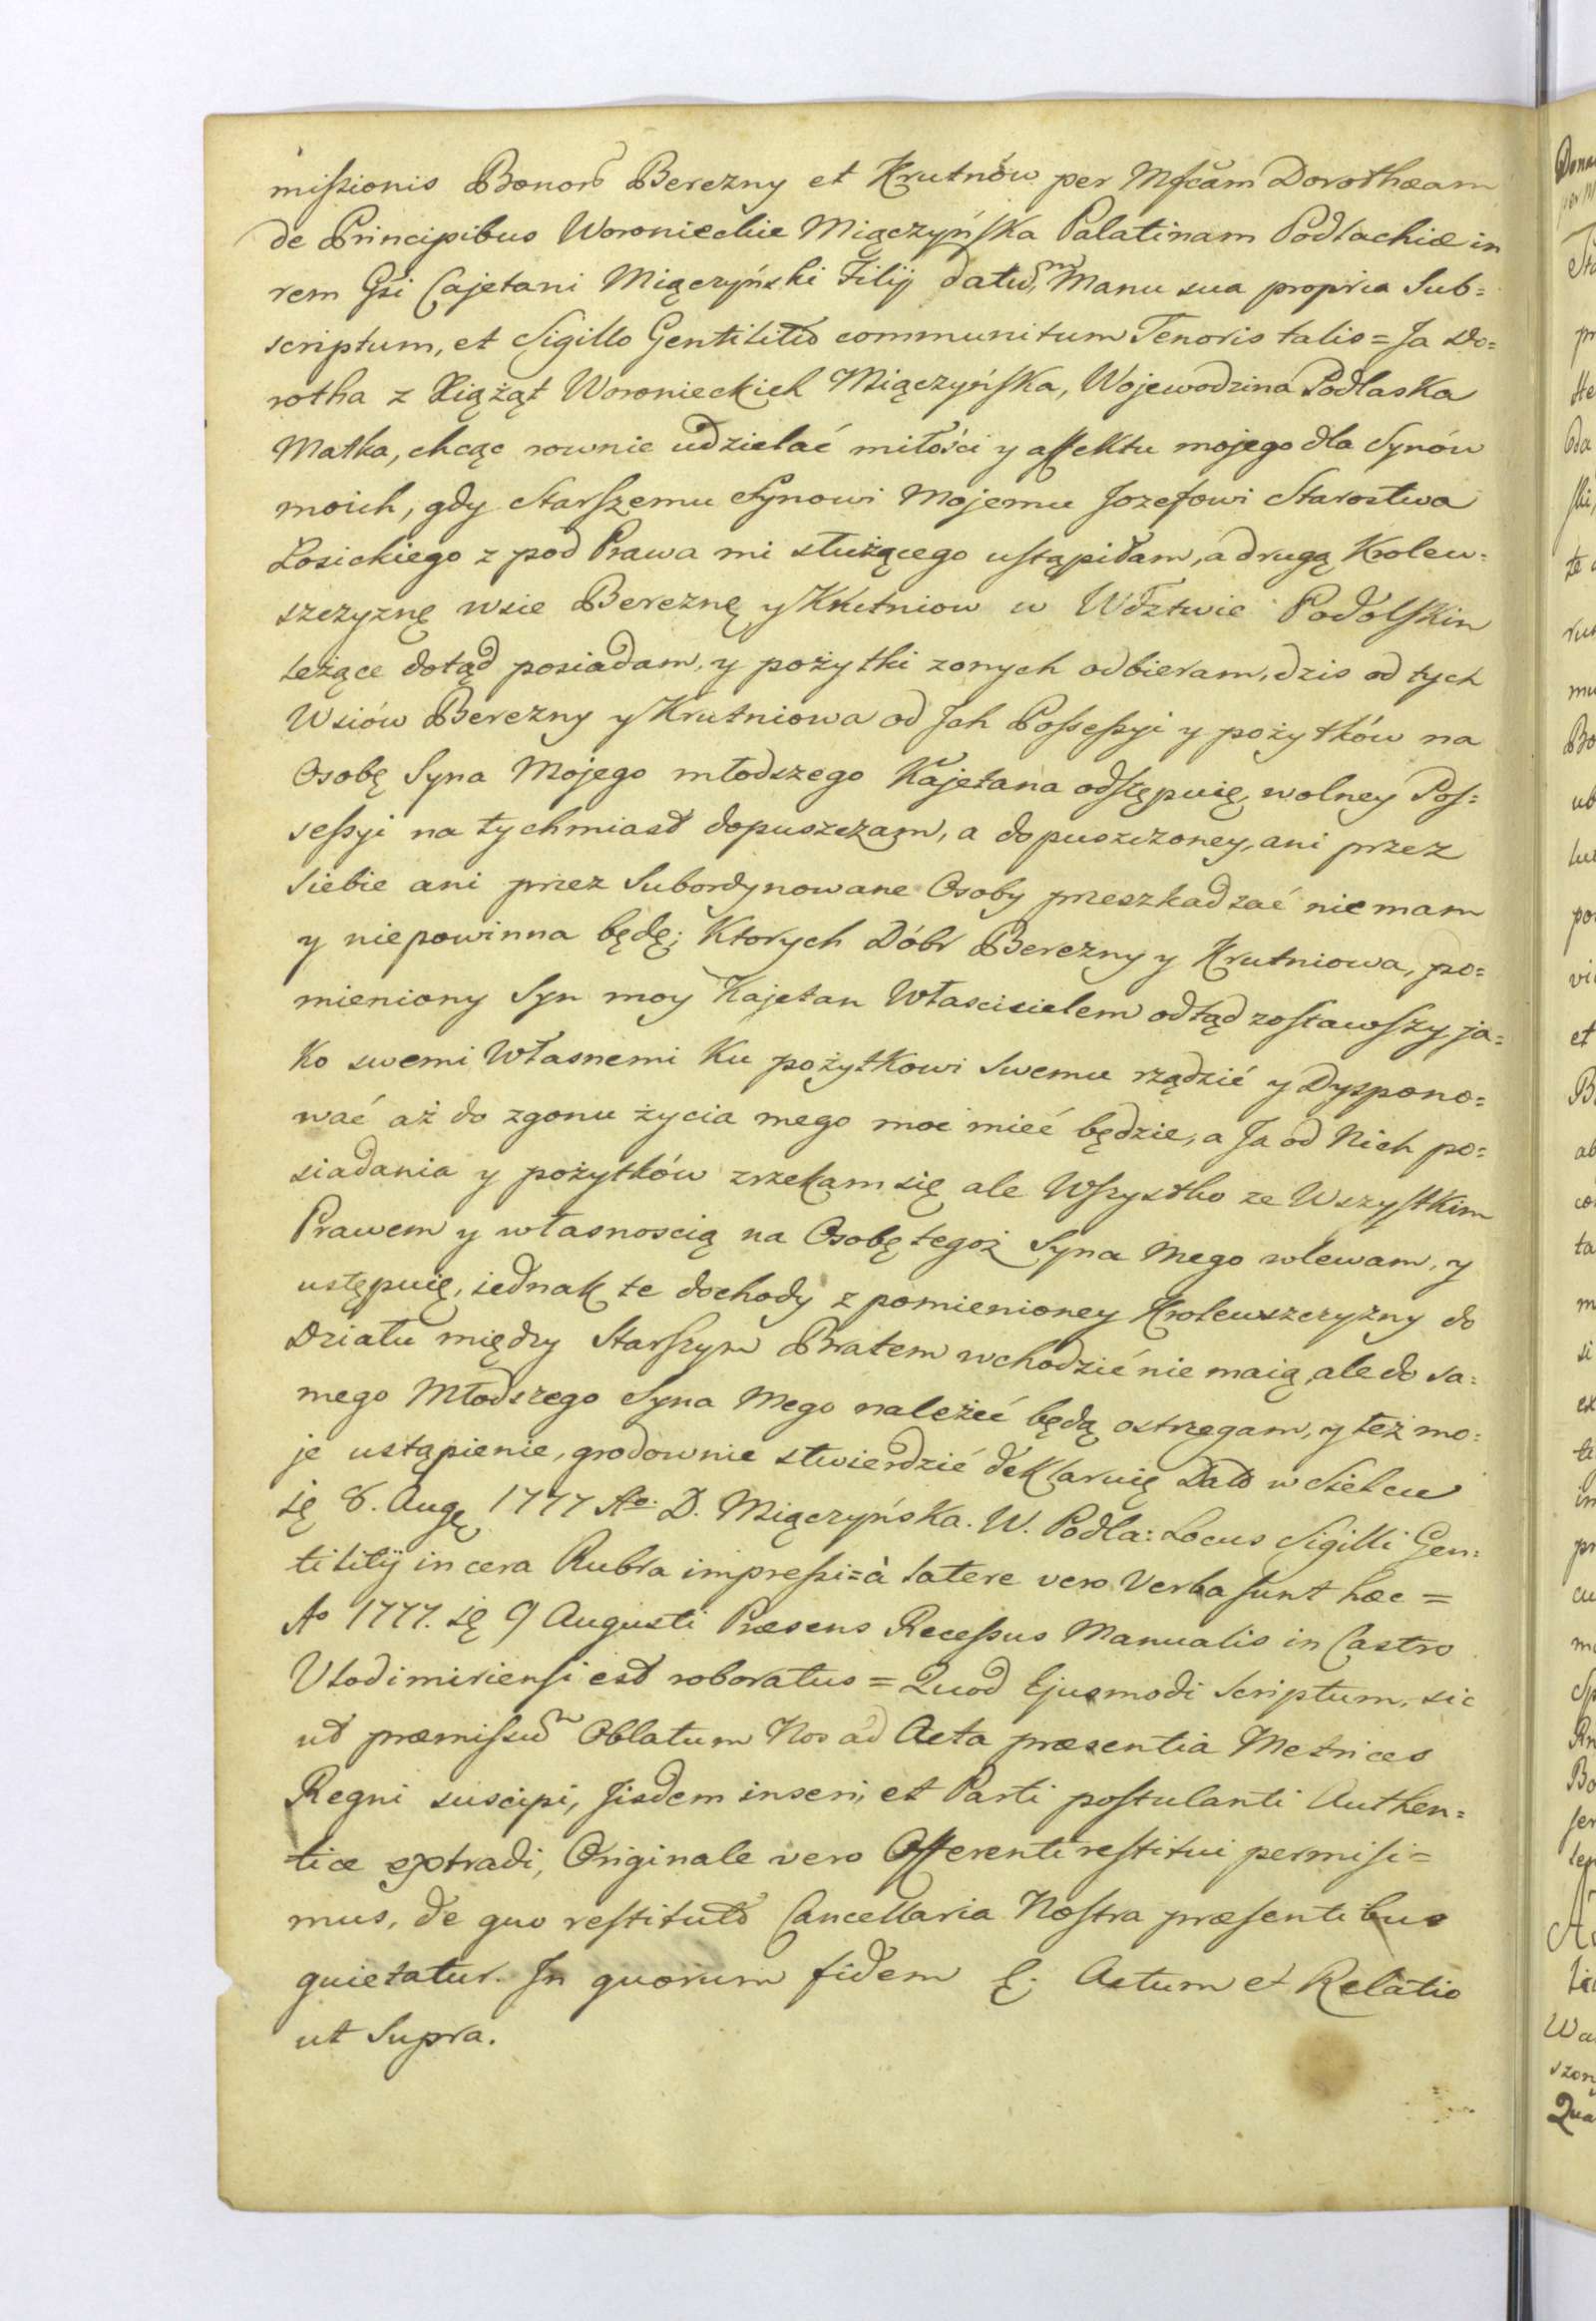 mißionis Bonorũ Berezny et Krutnów per Mfcam Dorotheam
de Principibus Woroniechie Miączyńska Palatinam Podlachiæ in
rem Gsi Cajetani Miączyński Filij datũ, Manu sua propria Sub=
scriptum, et Sigillo Gentilitio communitum Tenoris talis = Ja Do=
rotha z Xiążąt Woronieckich Miączyńska, Wojewodzina Podlaska
Matka, chcąc rownie udzielać miłości y affektu mojego dla Synów
moich, gdy Starszemu Synowi Mojemu Jozefowi Starostwa
Łosickiego z pod Prawa mi służącego ustąpiłam, a drugą Krolew=
szczyznę wsie Bereznę y Krutniow w Wdztwie Podolskim
leżące dotąd posiadam, y pożytki zonych odbieram, dzis od tych
Wsiów Berezny y Krutniowa od Jch Poßeßyi y pożytków na
Osobę Syna Mojego młodszego Kajetana odstępuię, wolney Pos=
seßyi na tychmiast dopuszczam, a dopuszczoney, ani przez
Siebie ani przez Subordynowane Osoby przeszkadzać nie mam
y niepowinna będę; Ktorych Dóbr Berezny y Krutniowa, po=
mieniony Syn moy Kajetan Włascicielem odtąd zostawszy ja=
ko swemi Własnemi Ku pożytkowi Swemu rządzić y Dyspono=
wać aż do zgonu życia mego moc mieć będzie, a Ja od Nich po=
siadania y pożytków zrzekam się ale Wszystko ze Wszystkim
Prawem y własnoscią na Osobę tegoż Syna Mego wlewam, y
ustępuię, iednak te dochody z pomienioney Krolewszczyzny do
Działu między Starszym Bratem wchodzić nie maią, ale do sa=
mego Młodszego Syna Mego należeć będą ostrzegam, y też mo=
je ustąpienie, grodownie stwierdzić deklaruię Datt w Sielcu
ię 8. Augę 1777 Ao: D. Miączyńska. W. Podla: Locus Sigilli Gen=
tilitij in cera Rubra impreßi = à latere vero Verba sunt hæc =
Ao 1777. ię 9 Augusti Præsens Receßus Manualis in Castro
Vlodimiriensi est roboratus = Quod Ejusmodi Scriptum, sic
ut præmissũ Oblatum Nos ad Acta præsentia Metrices
Regni suscipi, Jisdem inseri, et Parti postulanti Authen=
ticæ extradi, Originale vero Offerenti restitui permisi=
mus, de quo restituto Cancellaria Nostra præsentibus
quietatur. Jn quorum fidem &. Actum et Relatio
ut Supra.